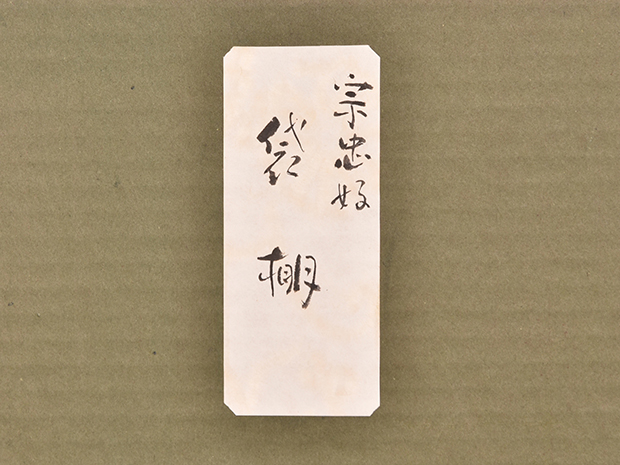 宗忠好
袋棚